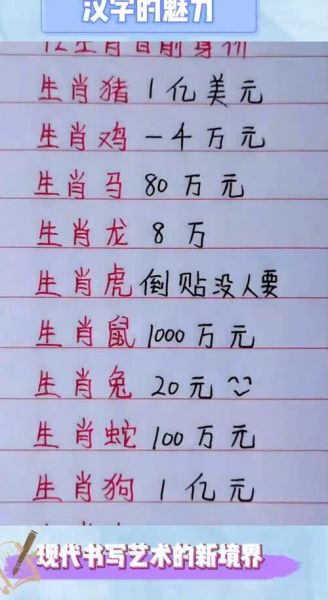 汉字的魅力
12生肖目前身价
生肖猪 1亿美元
生肖鸡 一4万元
生肖马 80万元
生肖龙 8万
生肖虎 倒贴没人要
生肖鼠 1000万元
生肖兔 20元
生肖蛇 100万元
生肖狗 1亿元
现代书写艺术的新境界